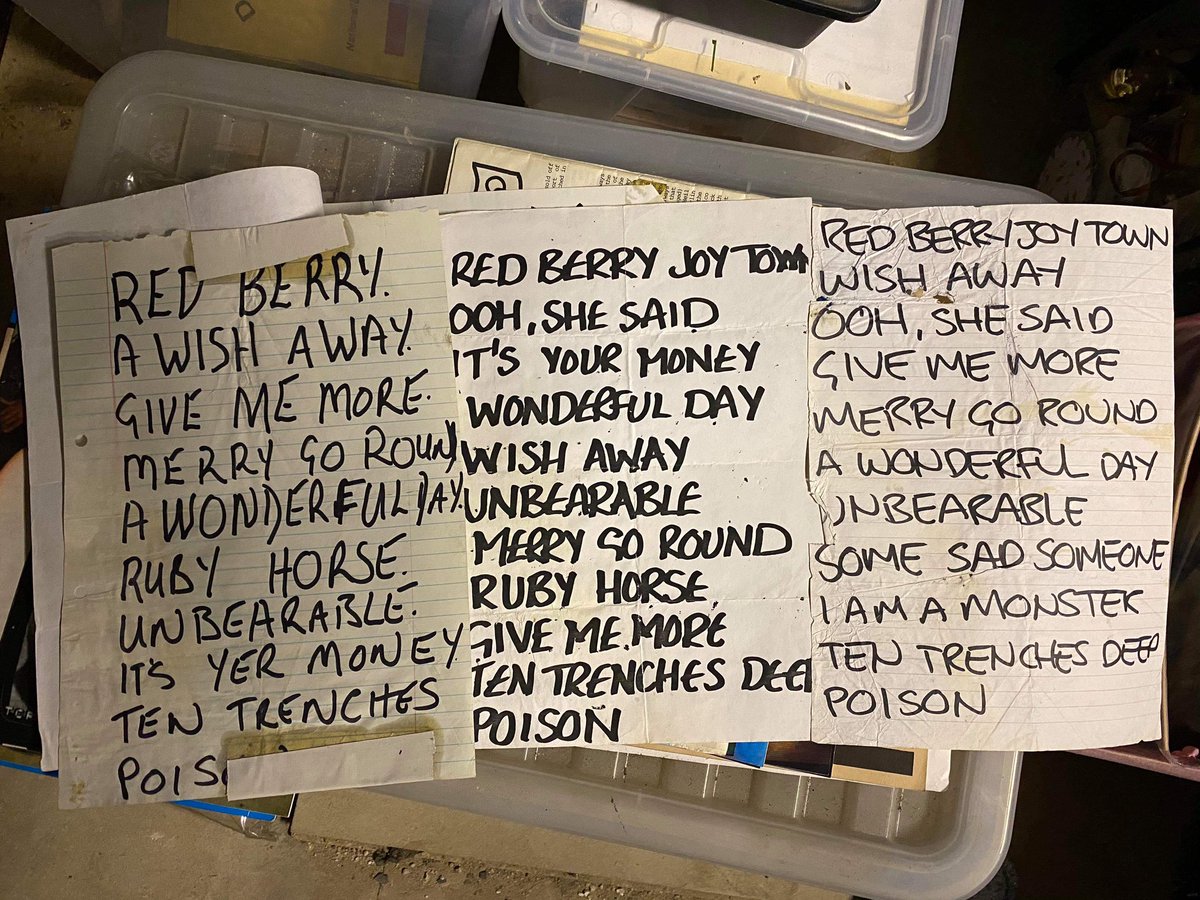 RED BERRY.
A WISH AWAY.
GIVE ME MORE.
MERRY GO ROUND
A WONDERFUL DAY.
RUBY HORSE.
UNBEARABLE.
IT'S YER MONEY
TEN TRENCHES
RED BERRY JOY TOWN
OOH, SHE SAID
IT'S YOUR MONEY
WONDERFUL DAY
WISH AWAY
UNBEARABLE
MERRY GO ROUND
RUBY HORSE
GIVE ME MORE
TEN TRENCHES DEEP
POISON
RED BERRY JOY TOWN
WISH AWAY
OOH, SHE SAID
GIVE ME MORE
MERRY GO ROUND
A WONDERFUL DAY
UNBEARABLE
SOME SAD SOMEONE
I AM A MONSTER
TEN TRENCHES DEEP
POISON